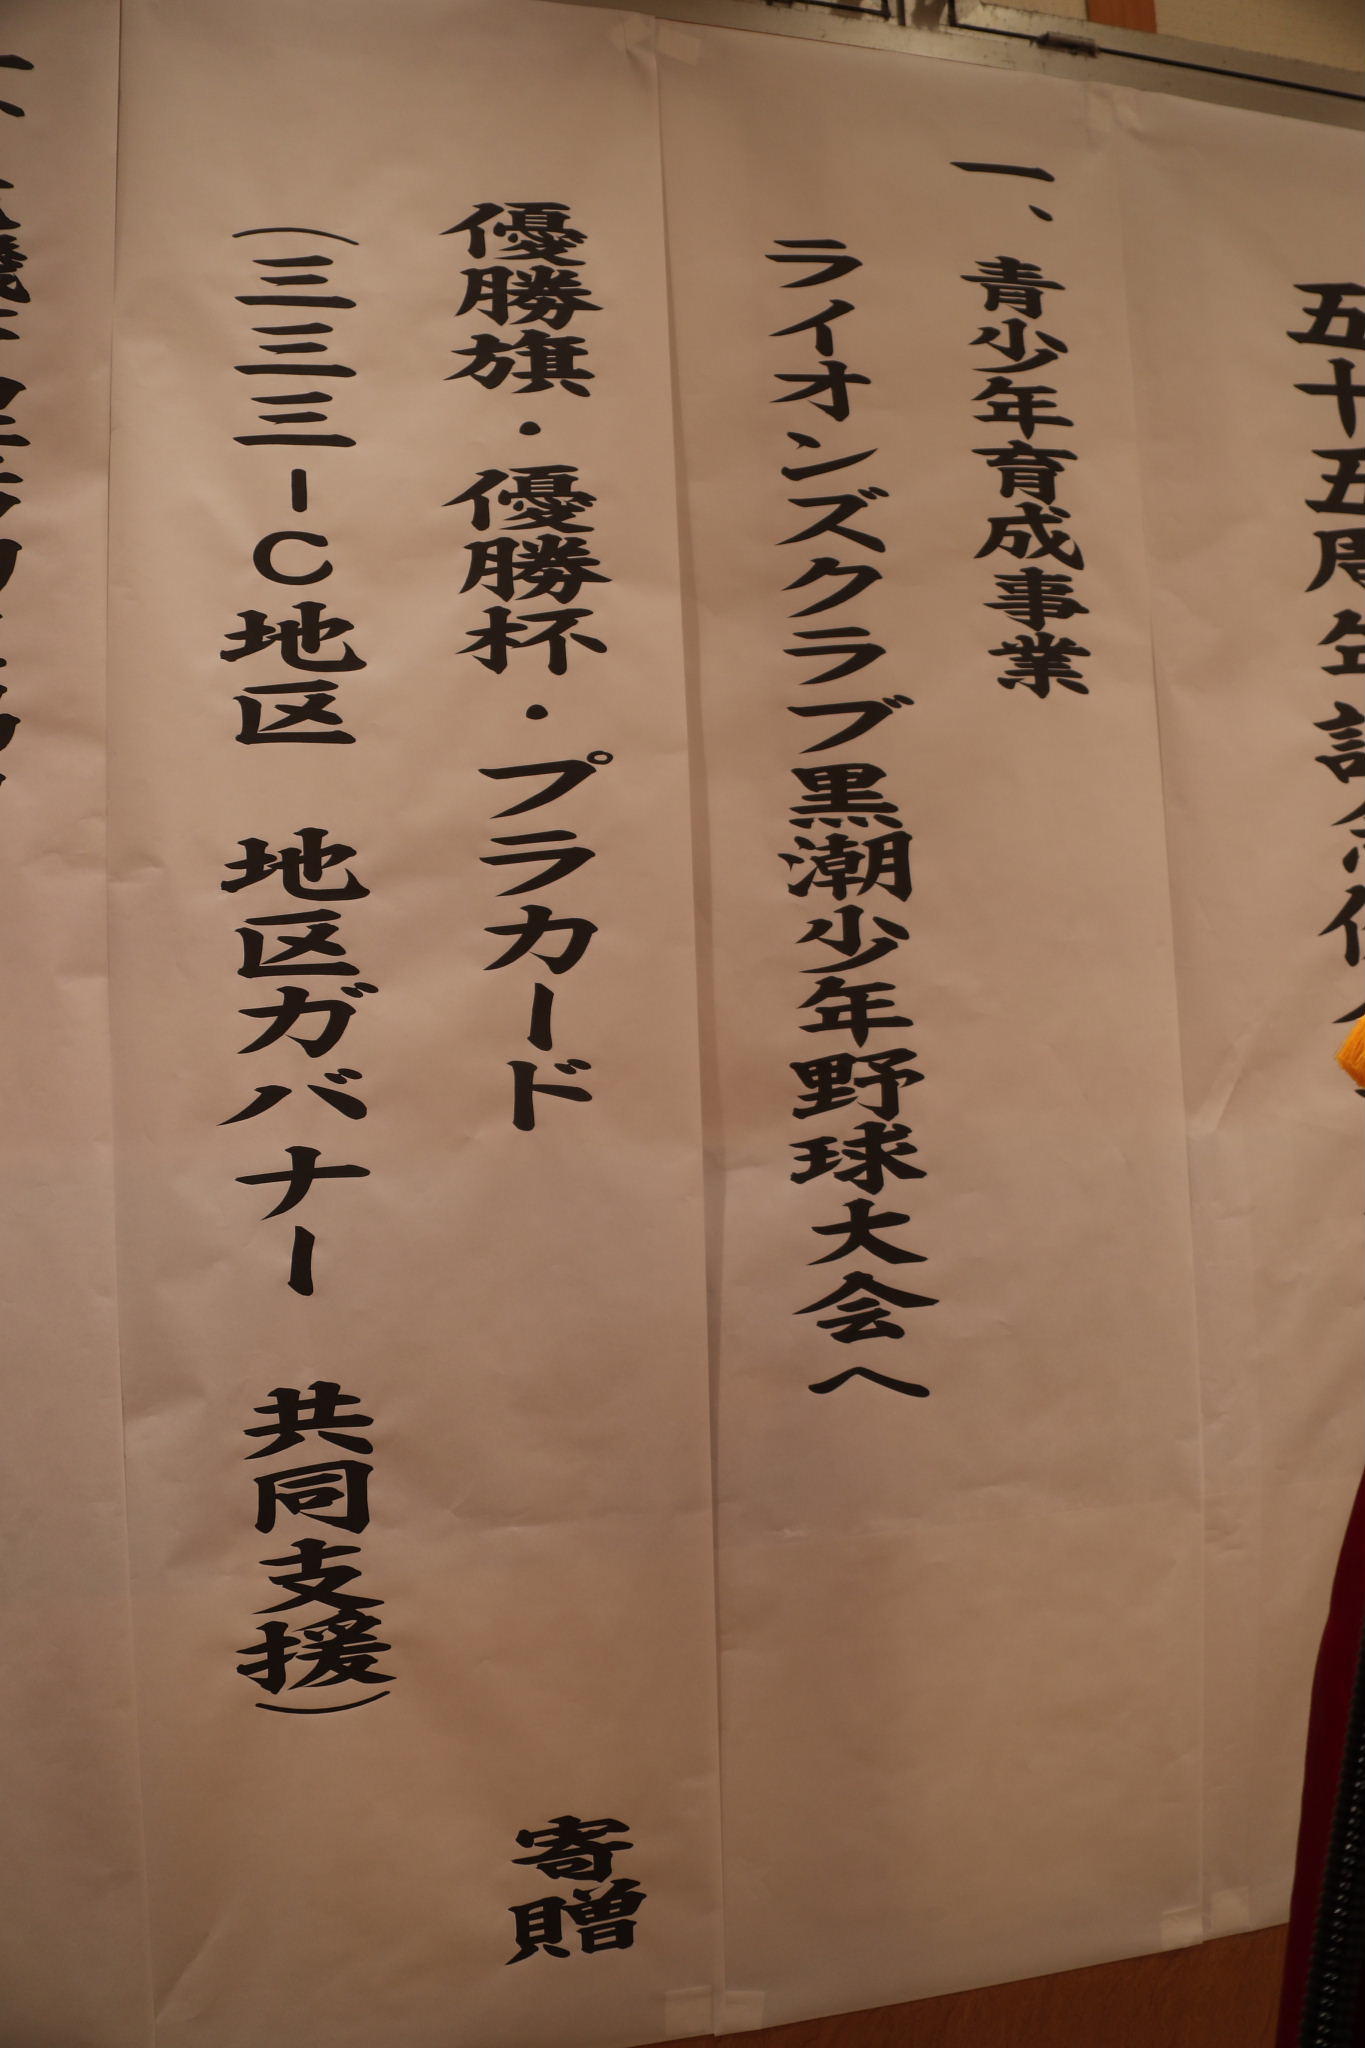 五十五周年記念
一、青少年育成事業
ライオンズクラブ黒潮少年野球大会へ
優勝旗・優勝杯・プラカード 寄贈
(三三三-C地区 地区ガバナー 共同支援)